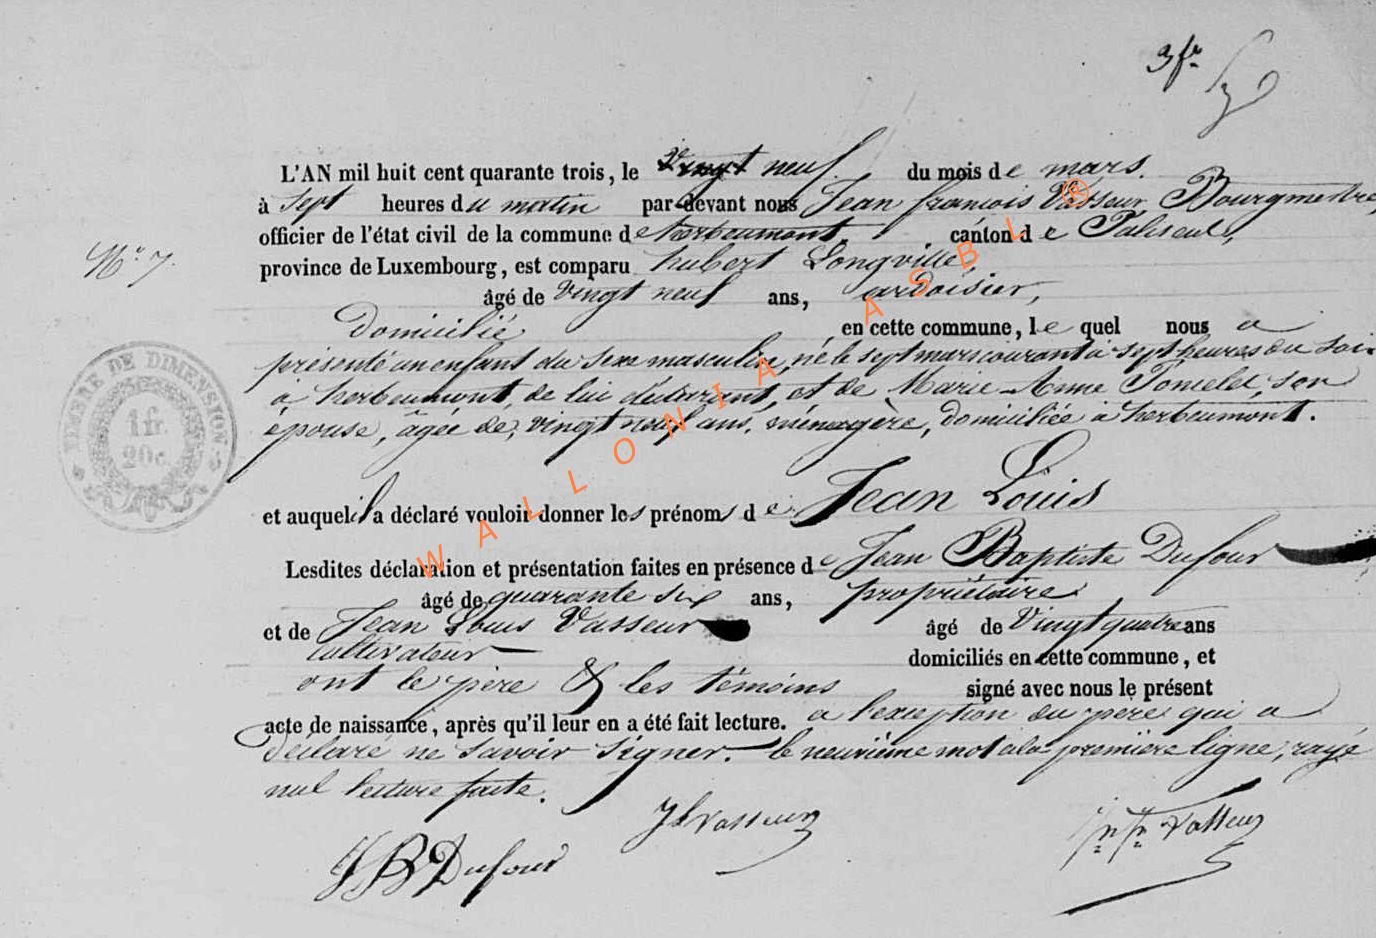 3 fr
L'AN mil huit cent quarante trois, le vingt neuf du mois de mars.
à sept heures du matin par-devant nous Jean françois Vasseur Bourgmestre,
officier de l'état civil de la commune de herbeumont, canton de Paliseul,
N° 7.
province de Luxembourg, est comparu hubert Longville,
âgé de vingt neuf ans, ardoisier,
domicilié en cette commune, le quel nous a
présenté un enfant du sexe masculin, né le sept mars courant à sept heures du soir
à herbeumont, de lui déclarant, et de Marie Anne Poncelet, son
épouse, âgée de, vingt neuf ans, ménagère, domiciliée à herbeumont.
TIMBRE DE DIMENSION
1 fr.
20 c.
et auquel il a déclaré vouloir donner les prénoms de Jean Louis
Lesdites déclaration et présentation faites en présence de Jean Baptiste Dufour
âgé de quarante six ans, propriétaire
et de Jean Louis Vasseur âgé de vingt quatre ans
cultivateur domiciliés en cette commune, et
ont le père & les témoins signé avec nous le présent
acte de naissance, après qu'il leur en a été fait lecture. a l'exception du père qui a
déclaré ne savoir signer. le neuvième mot à la première ligne, rayé
nul lecture faite.
JL Vasseur
JB Dufour
Vasseur
WALLONIA ASBL ®